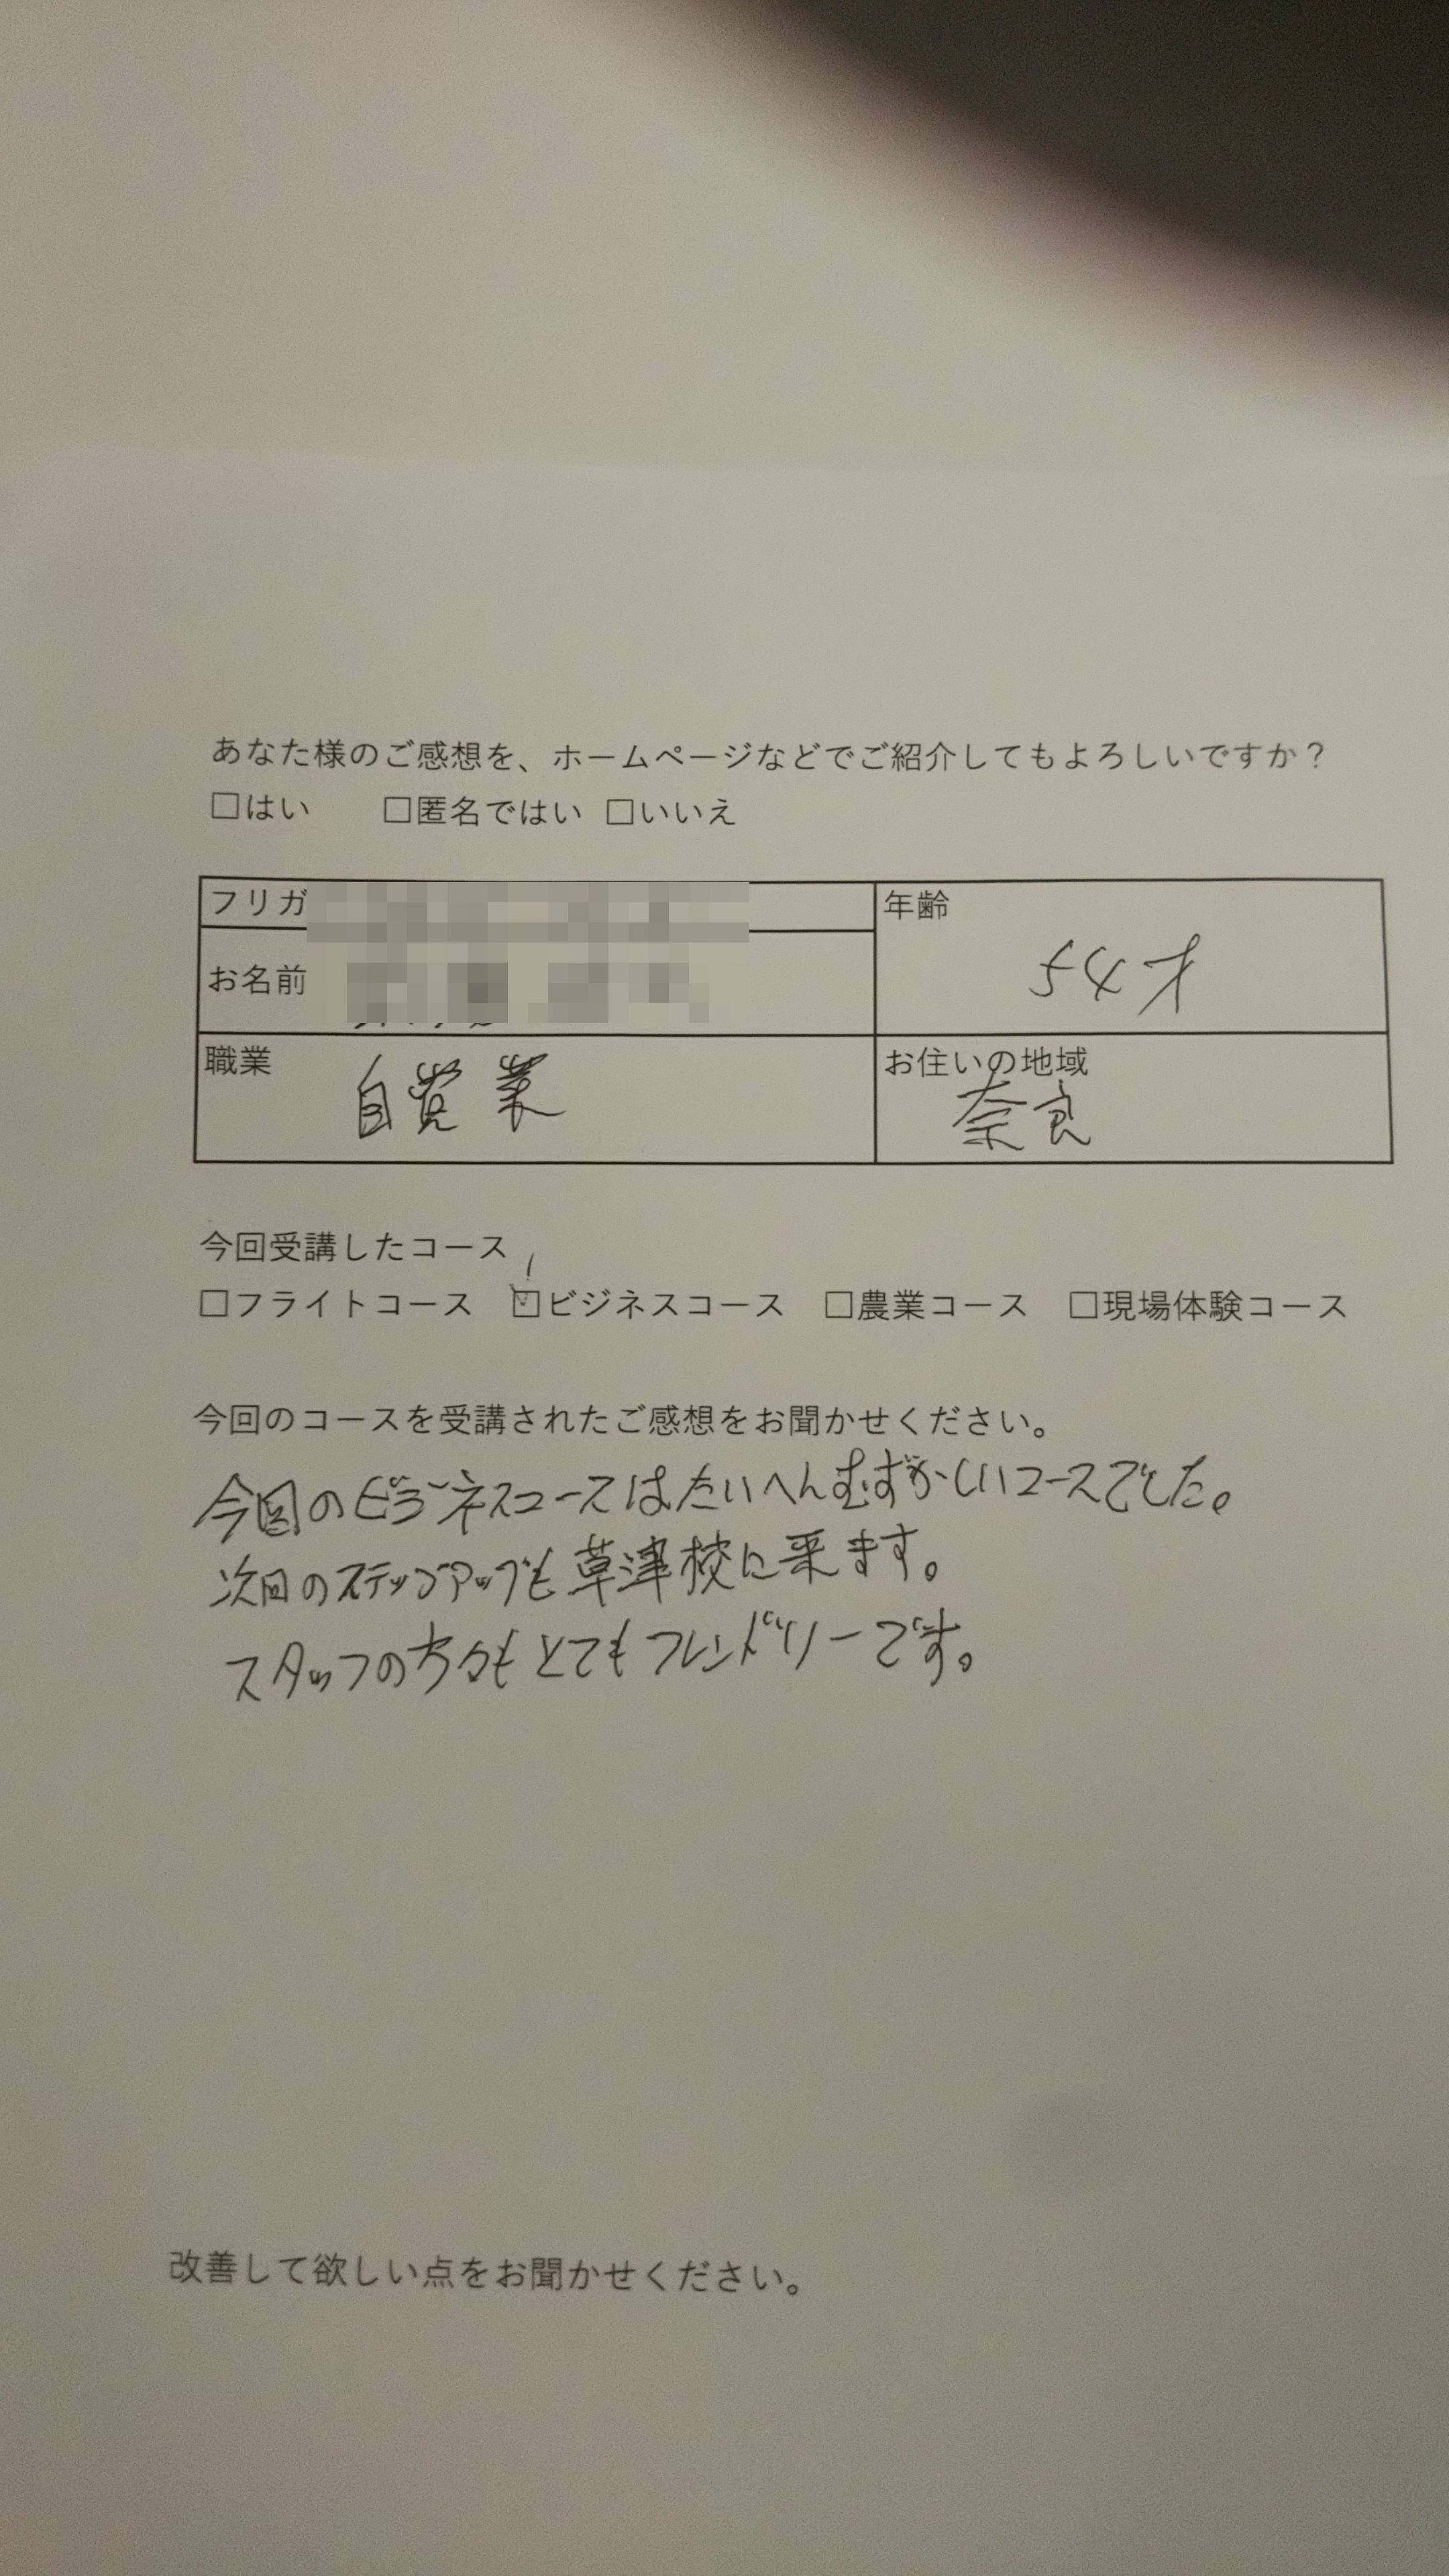 あなた様のご感想を、ホームページなどでご紹介してもよろしいですか？
□はい □匿名ではい □いいえ
フリガ
年齢
54才
お名前
職業
自営業
お住いの地域
奈良
今回受講したコース
□フライトコース ☑ビジネスコース □農業コース □現場体験コース
今回のコースを受講されたご感想をお聞かせください。
今回のビジネスコースはたいへんむずかしいコースでした。
次回のステップアップも草津校に来ます。
スタッフの方々もとてもフレンドリーです。
改善して欲しい点をお聞かせください。